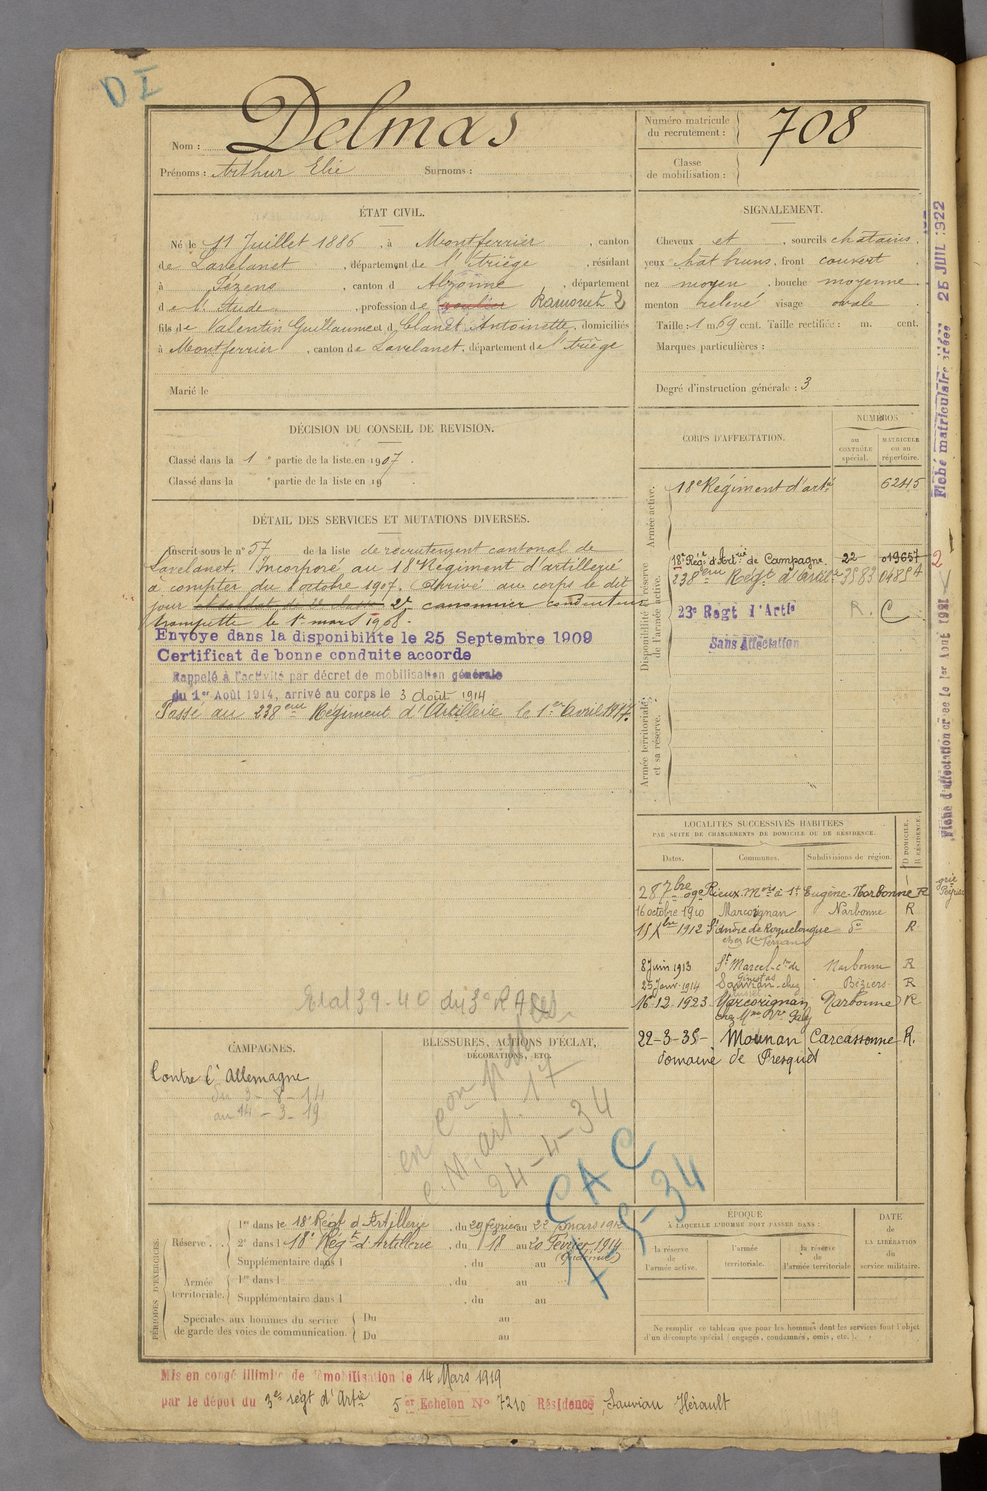 D I
Nom : Delmas
Prénoms : Arthur Elie Surnoms :
Numéro matricule du recrutement : 708
Classe de mobilisation :
ÉTAT CIVIL.
Né le 11 Juillet 1886, à Montferrier, canton
de Lavelanet, département de l'Ariège, résidant
à Pézens, canton d Alzonne, département
de l'Aude, profession de Ramonet 2
fils de Valentin Guillaume et d Clanet Antoinette, domiciliés
à Montferrier, canton de Lavelanet, département de l'Ariège
Marié le
SIGNALEMENT.
Cheveux et, sourcils chatains,
yeux chat bruns, front couvert,
nez moyen, bouche moyenne,
menton relevé visage ovale
Taille : 1 m 69 cent. Taille rectifiée : m. cent.
Marques particulières :
Degré d'instruction générale : 3
DÉCISION DU CONSEIL DE REVISION.
Classé dans la 1e partie de la liste en 1907.
Classé dans la e partie de la liste en 19
DÉTAIL DES SERVICES ET MUTATIONS DIVERSES.
Inscrit sous le n° 57 de la liste de recrutement cantonal de
Lavelanet. Incorporé au 18e Régiment d'artillerie
à compter du 8 octobre 1907. Arrivé au corps le dit
jour et soldat de 2e classe 2e canonnier conducteur
trompette le 1er mars 1908.
Envoyé dans la disponibilité le 25 Septembre 1909
Certificat de bonne conduite accordé
Rappelé à l'activité par décret de mobilisation générale
du 1er Août 1914, arrivé au corps le 3 Août 1914
Passé au 238eme Régiment d'Artillerie le 1er Avril 1917.
CORPS D'AFFECTATION.
NUMÉROS
AU CONTRÔLE spécial.
MATRICULE OU AU répertoire.
Armée active.
18e Régiment d'artie 6245
Disponibilité et réserve de l'armée active.
18e Régt d'Artrie de Campagne 22 019657
238eme Regt d'Artie 3583 04854
23e Regt d'Artie R. C
Sans Affectation
Armée territoriale et sa réserve.
2
Fiché matriculaire créée 26 JUIL 1922
Fiche d'affectation créée le 1er Août 1931
LOCALITÉS SUCCESSIVES HABITÉES
PAR SUITE DE CHANGEMENTS DE DOMICILE OU DE RÉSIDENCE.
Dates. Communes. Subdivisions de région. D DOMICILE. R RÉSIDENCE.
28 7bre 909 Rieux-Mvois à St Eugène Narbonne R
16 octobre 1910 Marcorignan Narbonne R
15 Xbre 1912 St André de Roquelongue do R
8 Juin 1913 St Marcel cton de Ginestas Narbonne R
25 Janv. 1914 Sauvian chez Béziers R
16-12-1923 Marcorignan Narbonne R
22-3-35 Mounan Carcassonne R.
domaine de Presquet
Etat 39-40 du 3e RA
CAMPAGNES.
Contre l'Allemagne
du 3-8-14
au 14-3-19
BLESSURES, ACTIONS D'ÉCLAT,
DÉCORATIONS, ETC.
24-4-34
CAC
7-5-34
PÉRIODES D'EXERCICES.
Réserve.
1re dans le 18e Régt d'Artillerie, du 29 février au 22 mars 1912
2e dans l 18e Régt d'Artillerie, du 18 au 20 Février 1914
Supplémentaire dans l, du au
Armée territoriale.
1re dans l, du au
Supplémentaire dans l, du au
Spéciales aux hommes du service de garde des voies de communication.
Du au
Du au
ÉPOQUE
À LAQUELLE L'HOMME DOIT PASSER DANS :
la réserve de l'armée active.
l'armée territoriale.
la réserve de l'armée territoriale
DATE de LA LIBÉRATION du service militaire.
Ne remplir ce tableau que pour les hommes dont les services font l'objet
d'un décompte spécial (engagés, condamnés, omis, etc.).
Mis en congé illimité de démobilisation le 14 Mars 1919
par le dépôt du 3e régt d'Artie 5er Echelon N° 7210 Résidence Sauvian Hérault